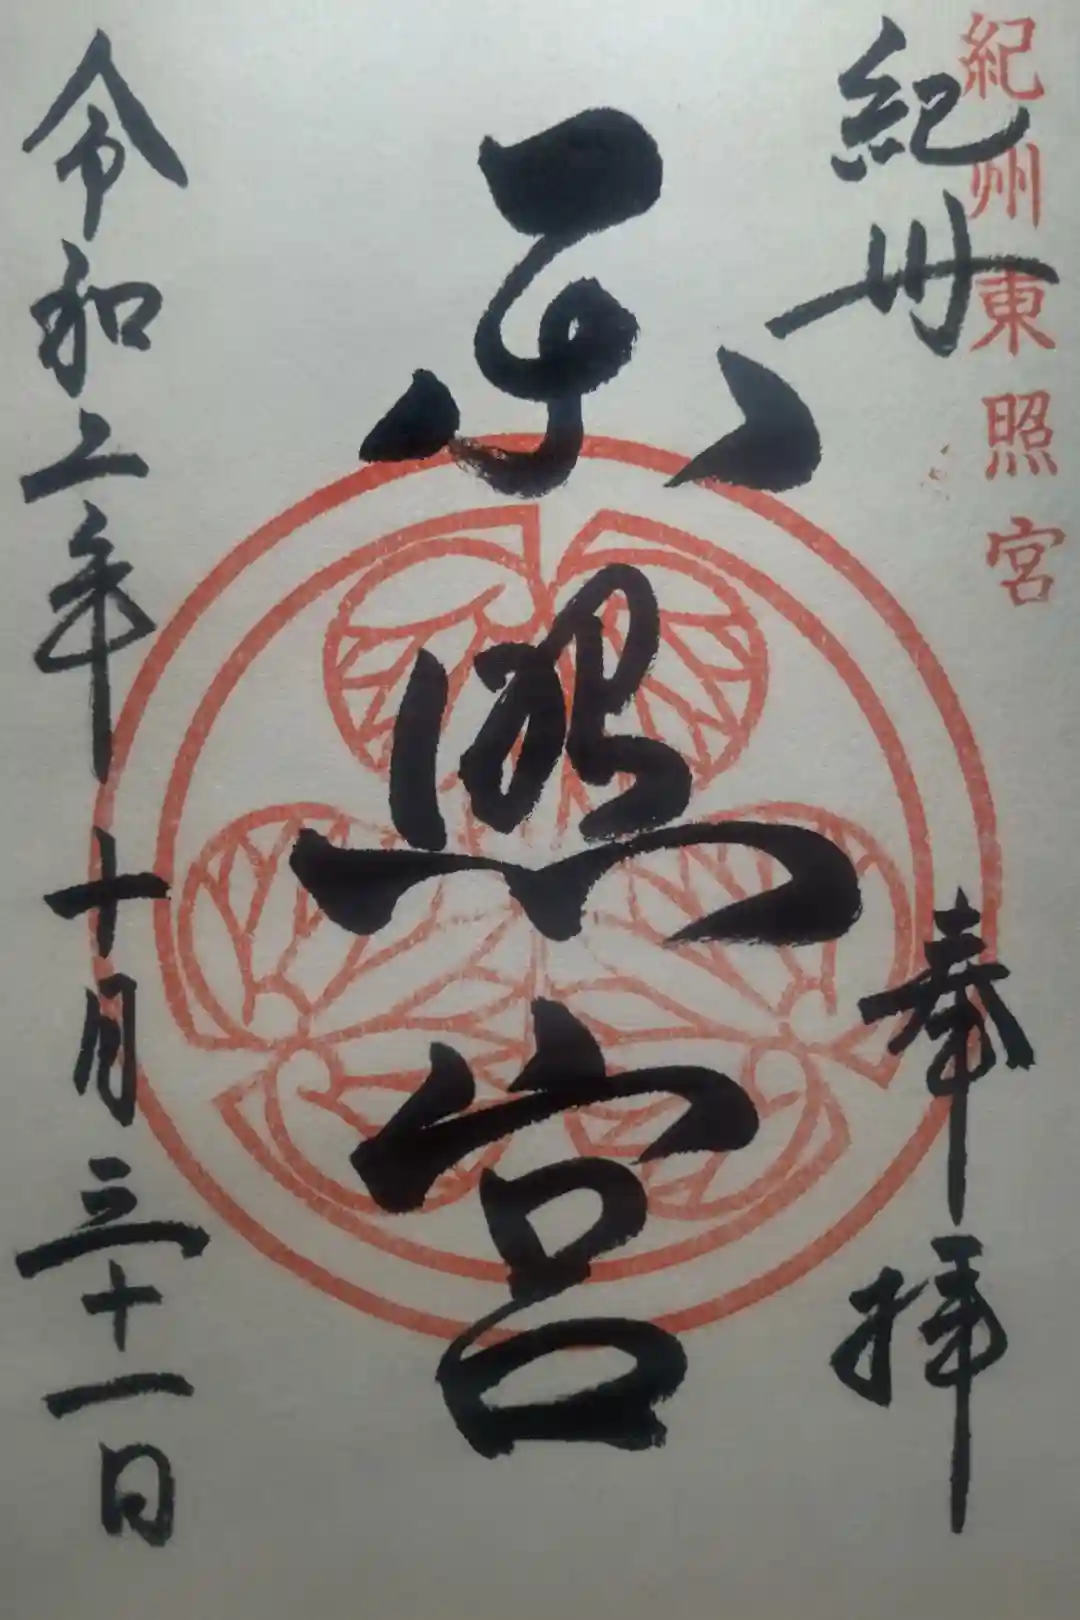 紀州東照宮
紀州
奉拝
東照宮
令和二年十月三十一日